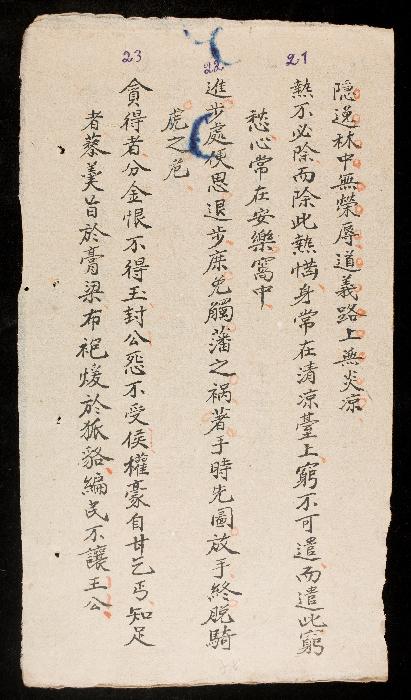 隱逸林中無榮辱道義路上無炎凉
21
熱不必除而除此熱惱身常在清凉臺上窮不可遣而遣此窮
愁心常在安樂窩中
22
進步處便思退步庶免觸藩之禍著手時先圖放手終脫騎
虎之危
23
貪得者分金恨不得玉封公怨不受侯權豪自甘乞丐知足
者藜羹旨於膏梁布袍煖於狐貉編民不讓王公